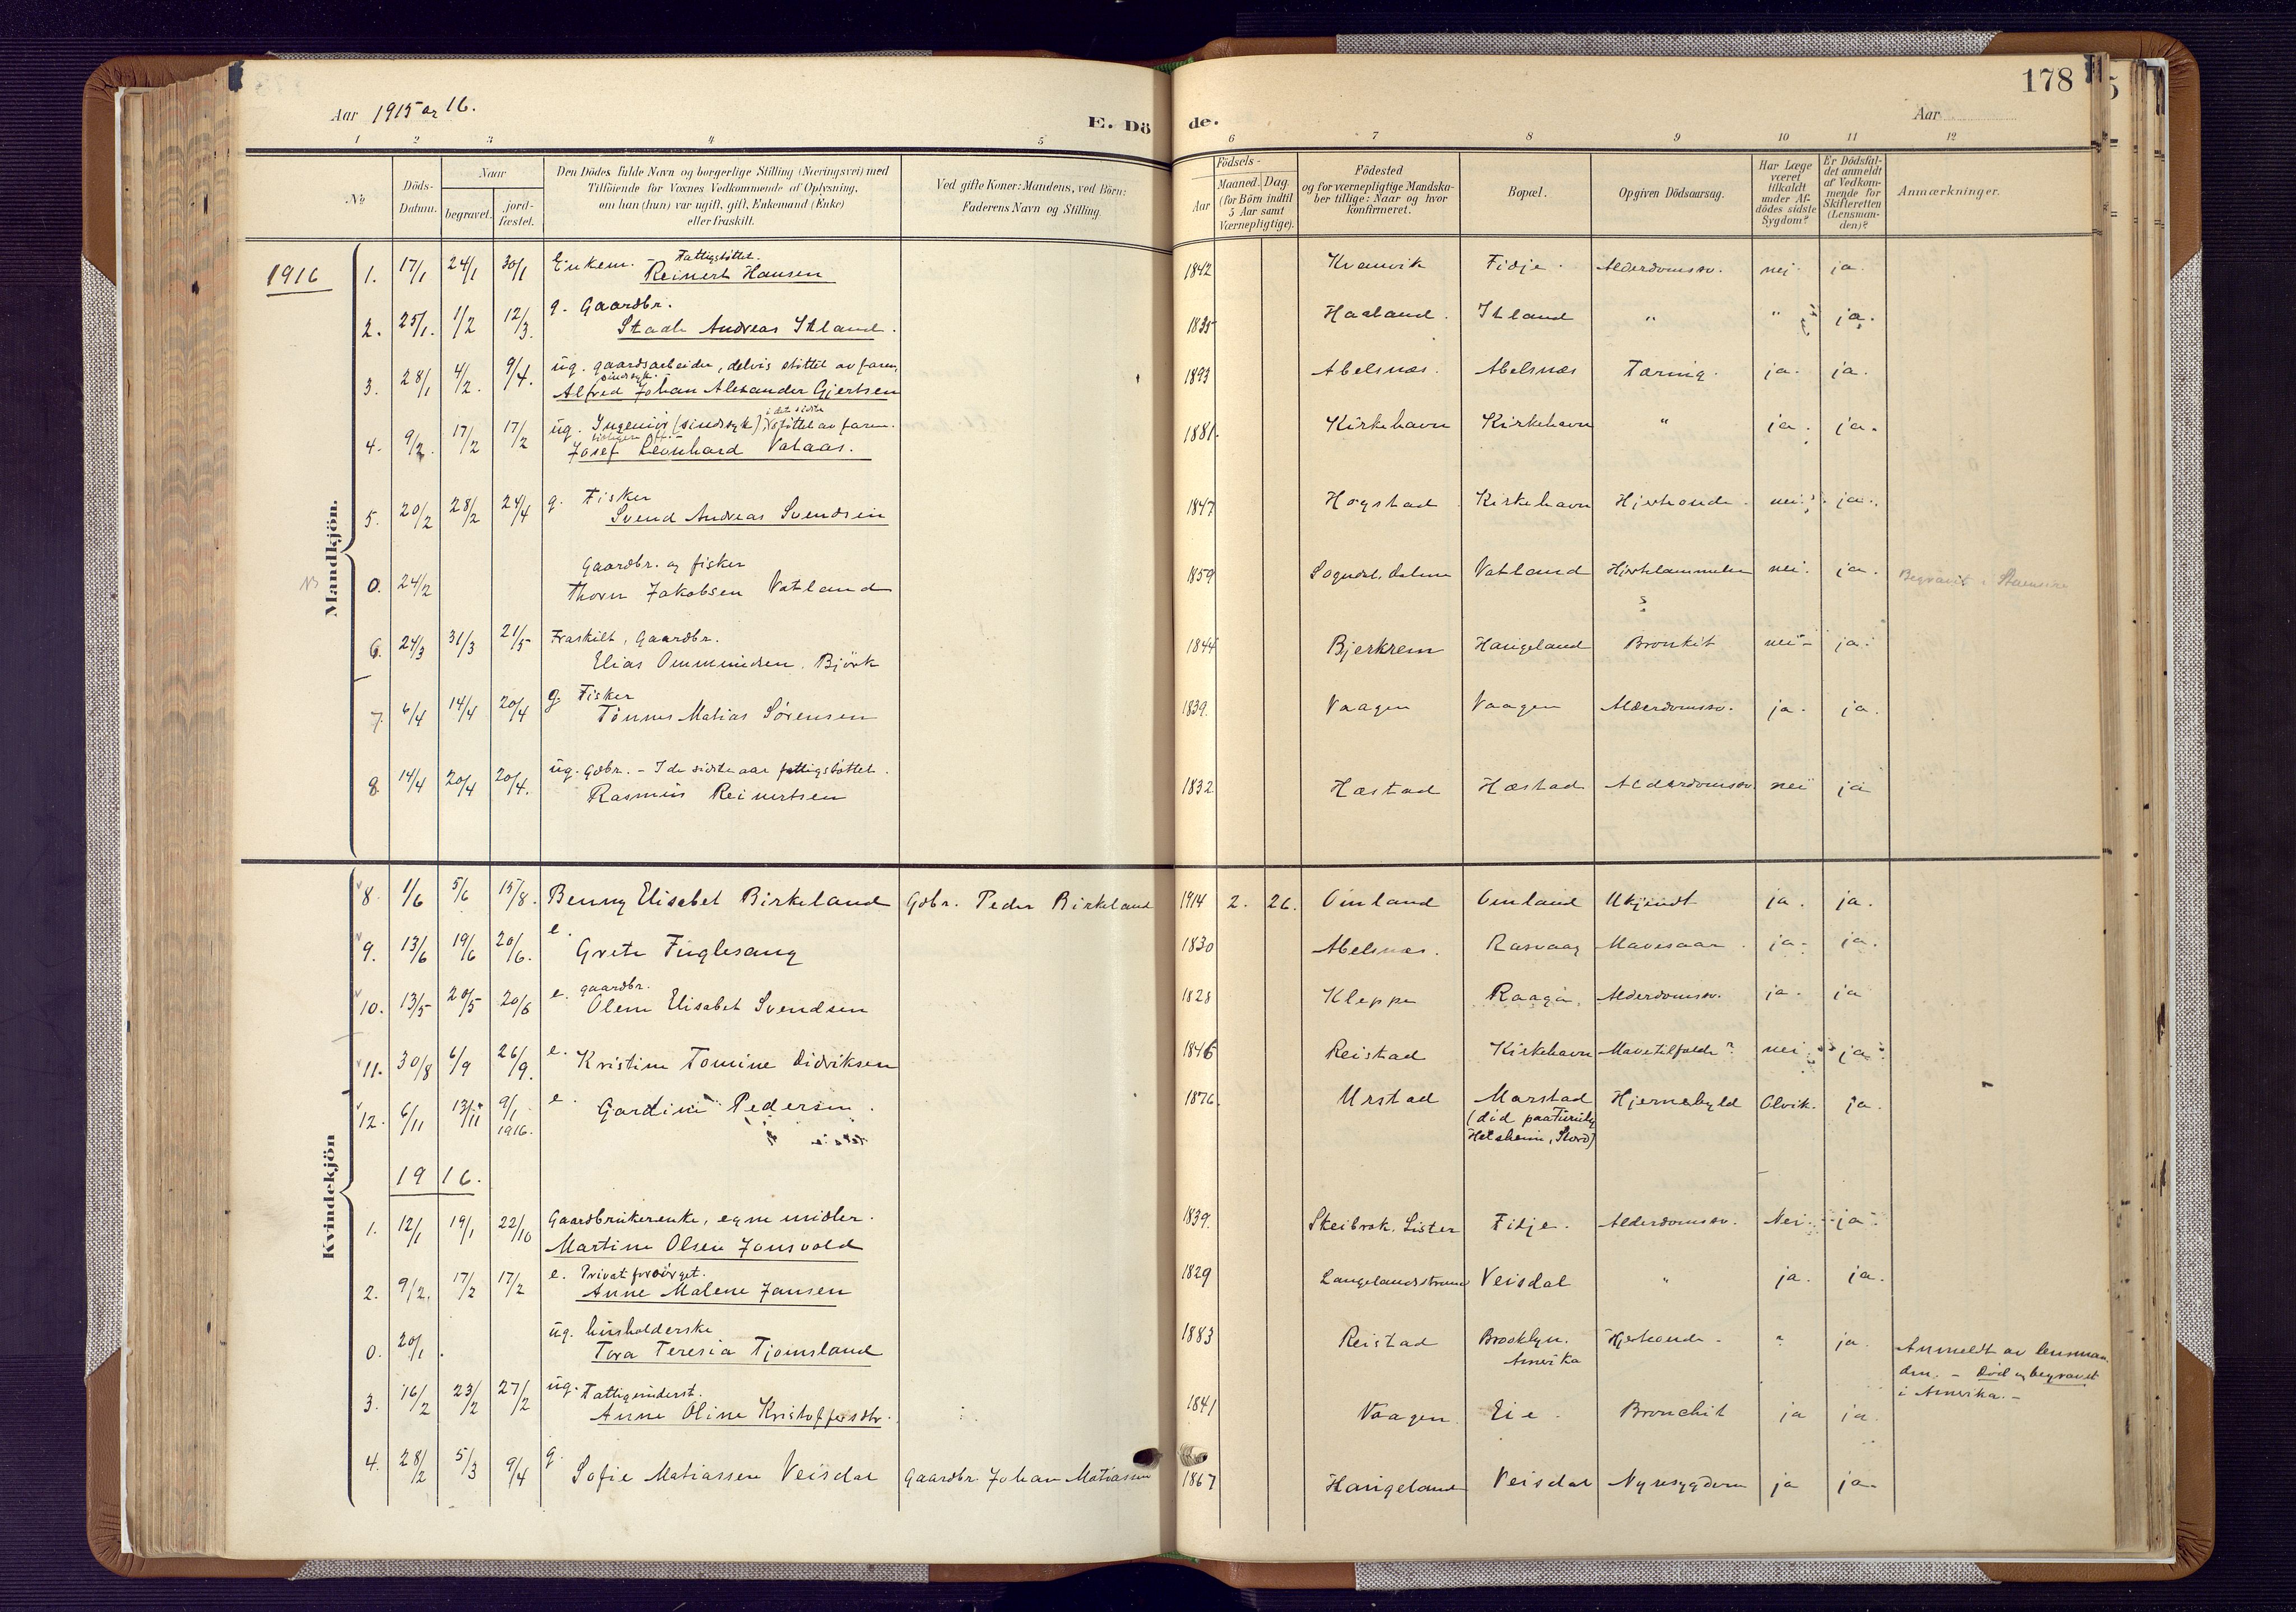 178
Aar 1915 og 16.
E. Dö de.
Aar
1 2 3 4 5 6 7 8 9 10 11 12
No
Döds-Datum.
Naar
begravet.
jord-fæstet.
Den Dödes fulde Navn og borgerlige Stilling (Næringsvei) med
Tilföiende for Voxnes Vedkommende af Oplysning,
om han (hun) var ugift, gift, Enkemand (Enke)
eller fraskilt.
Ved gifte Koner: Mandens, ved Börn:
Faderens Navn og Stilling.
Födsels-
Aar
Maaned. Dag.
(for Börn indtil
5 Aar samt
Værnepligtige).
Födested
og for værnepligtige Mandska-
ber tillige: Naar og hvor
konfirmeret.
Bopæl.
Opgiven Dödsaarsag.
Har Læge
været
tilkaldt
under Af-
dödes sidste
Sygdom?
Er Dödsfal-
det anmeldt
af Vedkom-
mende for
Skifteretten
(Lensman-
den)?
Anmærkninger.
Mandkjön.
1916
1. 17/1 24/1 30/1 Enkem. - Fattigstöttet. Reinert Hansen 1842 Kvanvik Fidje. Alderdomssv. nei. ja.
2. 25/1. 1/2 12/3. g. Gaardbr. Staale Andreas Itland. 1835 Haaland. Itland " " ja.
3. 28/1 4/2. 9/4. ug. gaardsarbeider, delvis støttet av faren, sindssyk. Alfred Johan Alexander Gjertsen 1893 Abelsnæs. Abelsnæs Tæring. ja. ja.
4. 9/2. 17/2 17/2 ug. Ingeniör (sindssyk), i det sidste støttet av faren. Josef Leonhard Valaas. 1881. Kirkehavn Kirkehavn " ja. ja.
5. 20/2 28/2 24/4 g. Fisker Svend Andreas Svendsen 1847 Høgstad Kirkehavn Hjerteonde. nei. ja.
0. 24/2 Gaardbr. og fisker Thorn Jakobsen Vatland 1859 Sogndal, Dalane Vatland Hjertelammelse nei. ja. Begravet i
6. 24/3 31/3 21/5 Fraskilt, Gaardbr. Elias Ommundsen Björk 1844 Bjerkrem Haugeland Bronkit nei- ja.
7. 6/4 14/4 20/4 g. Fisker Tönnes Matias Sörensen 1839. Vaagen Vaagen Alderdomssv. ja. ja.
8 14/4 20/4 20/4. ug. Gdbr. - I de sidste aar fattigstöttet. Rasmus Reinertsen 1832 Hæstad Hæstad Alderdomssv. nei ja
Kvindekjön
8. 1/6 5/6 15/8. Benny Elisabet Birkeland Gdbr. Peder Birkeland 1914 2. 26. Omland Omland Ukjendt ja. ja.
9. 13/6 19/6 20/6. e. Grete Fuglesang 1830 Abelsnæs. Rasvaag Mavesaar. ja. ja.
10. 13/5 20/5 20/6 e. gaardbr. Olene Elisabet Svendsen 1828 Kleppe Raaga. Alderdomssv. ja. ja
11. 30/8 6/9 26/9. e. Kristine Tomine Didriksen 1846 Reistad Kirkehavn Mavetilfælde? nei ja.
12. 6/11 13/11 9/1 1916. e. Gardine Pedersen. 1876. Urstad Marstad (död paa Helsheim, Stord) Hjernebyld Olvik. ja.
1916.
1. 12/1 19/1 22/10 Gaardbrukerenke, egne midler. Martine Olsen Jonsvold 1839. Skeibrok. Lister Fidje. Alderdomssv. Nei. ja.
2. 9/2. 17/2 17/2 e. Privat forsörget. Anne Malene Jansen 1829 Langelandsstrand Veisdal " ja. ja.
0. 20/1. ug. husholderske Tora Teresia Tjomsland 1883 Reistad Brooklyn. Amerika Hjerteonde. ? ja. Anmeldt av lensman-
den. - Död og begravet
i Amerika. -
3. 16/2 23/2 27/2 ug. Fattigunderst. Anne Oline Kristoffersdtr. 1841 Vaagen Eie. Bronchit ja ja.
4. 28/2 5/3 9/4 g. Sofie Matiassen Veisdal Gaardbr. Johan Matiassen 1867 Haugeland Veisdal Nyresygdom ja ja.